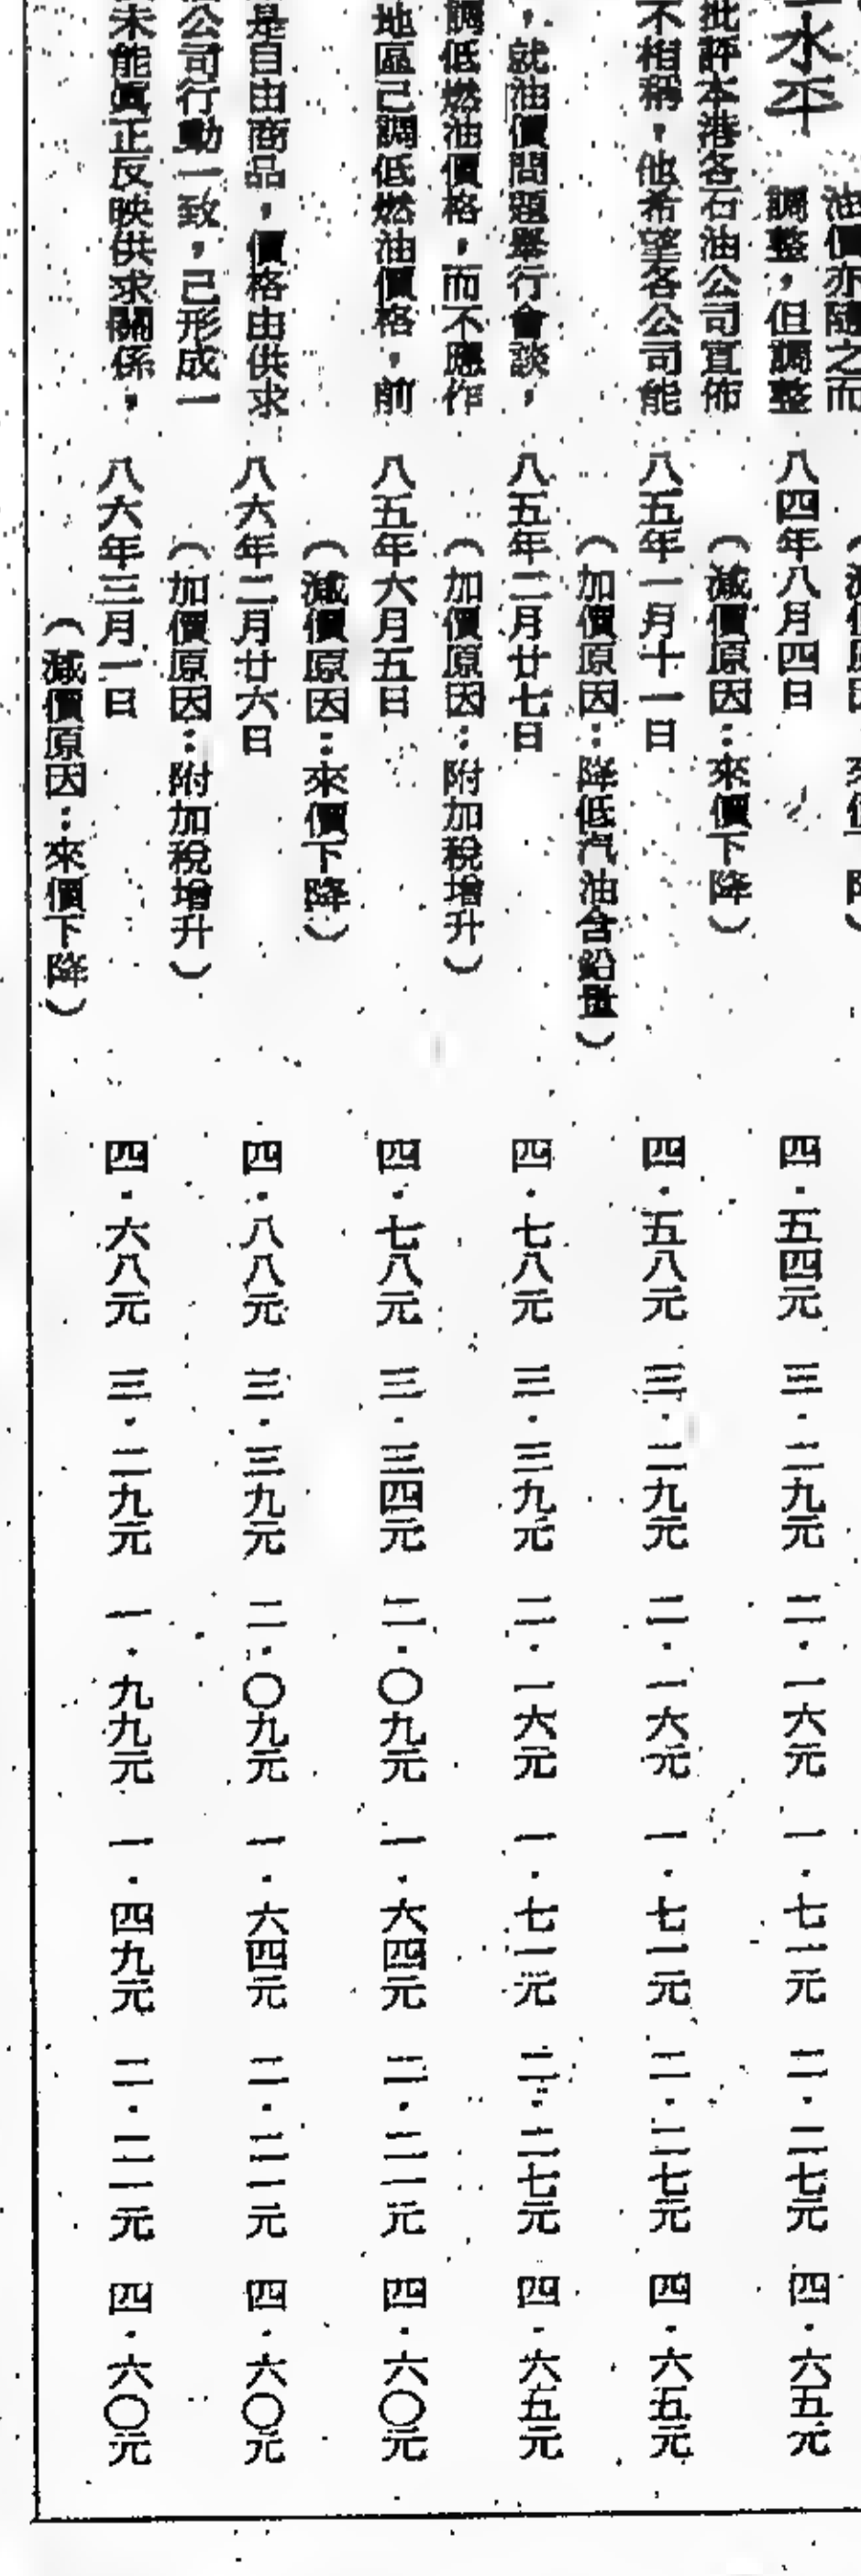 水平
油價亦隨之而
調整，但調整
批評本港各石油公司宣佈
不相稱，他希望各公司能
，就油價問題舉行會談，
調低燃油價格，而不應作
地區已調低燃油價格，前
是自由商品，價格由供求
公司行動一致，已形成一
未能眞正反映供求關係，
八四年八月四日 四．五四元 三．二九元 二．一六元 一．七一元 二．二七元 四．六五元
（減價原因：來價下降）
八五年一月十一日 四．五八元 三．二九元 二．一六元 一．七一元 二．二七元 四．六五元
（加價原因：降低汽油含鉛量）
八五年二月廿七日 四．七八元 三．三九元 二．一六元 一．七一元 二．二七元 四．六五元
（加價原因：附加稅增升）
八五年六月五日 四．七八元 三．三四元 二．〇九元 一．六四元 二．二一元 四．六〇元
（減價原因：來價下降）
八六年二月廿六日 四．八八元 三．三九元 二．〇九元 一．六四元 二．二一元 四．六〇元
（加價原因：附加稅增升）
八六年三月一日 四．六八元 三．二九元 一．九九元 一．四九元 二．二一元 四．六〇元
（減價原因：來價下降）